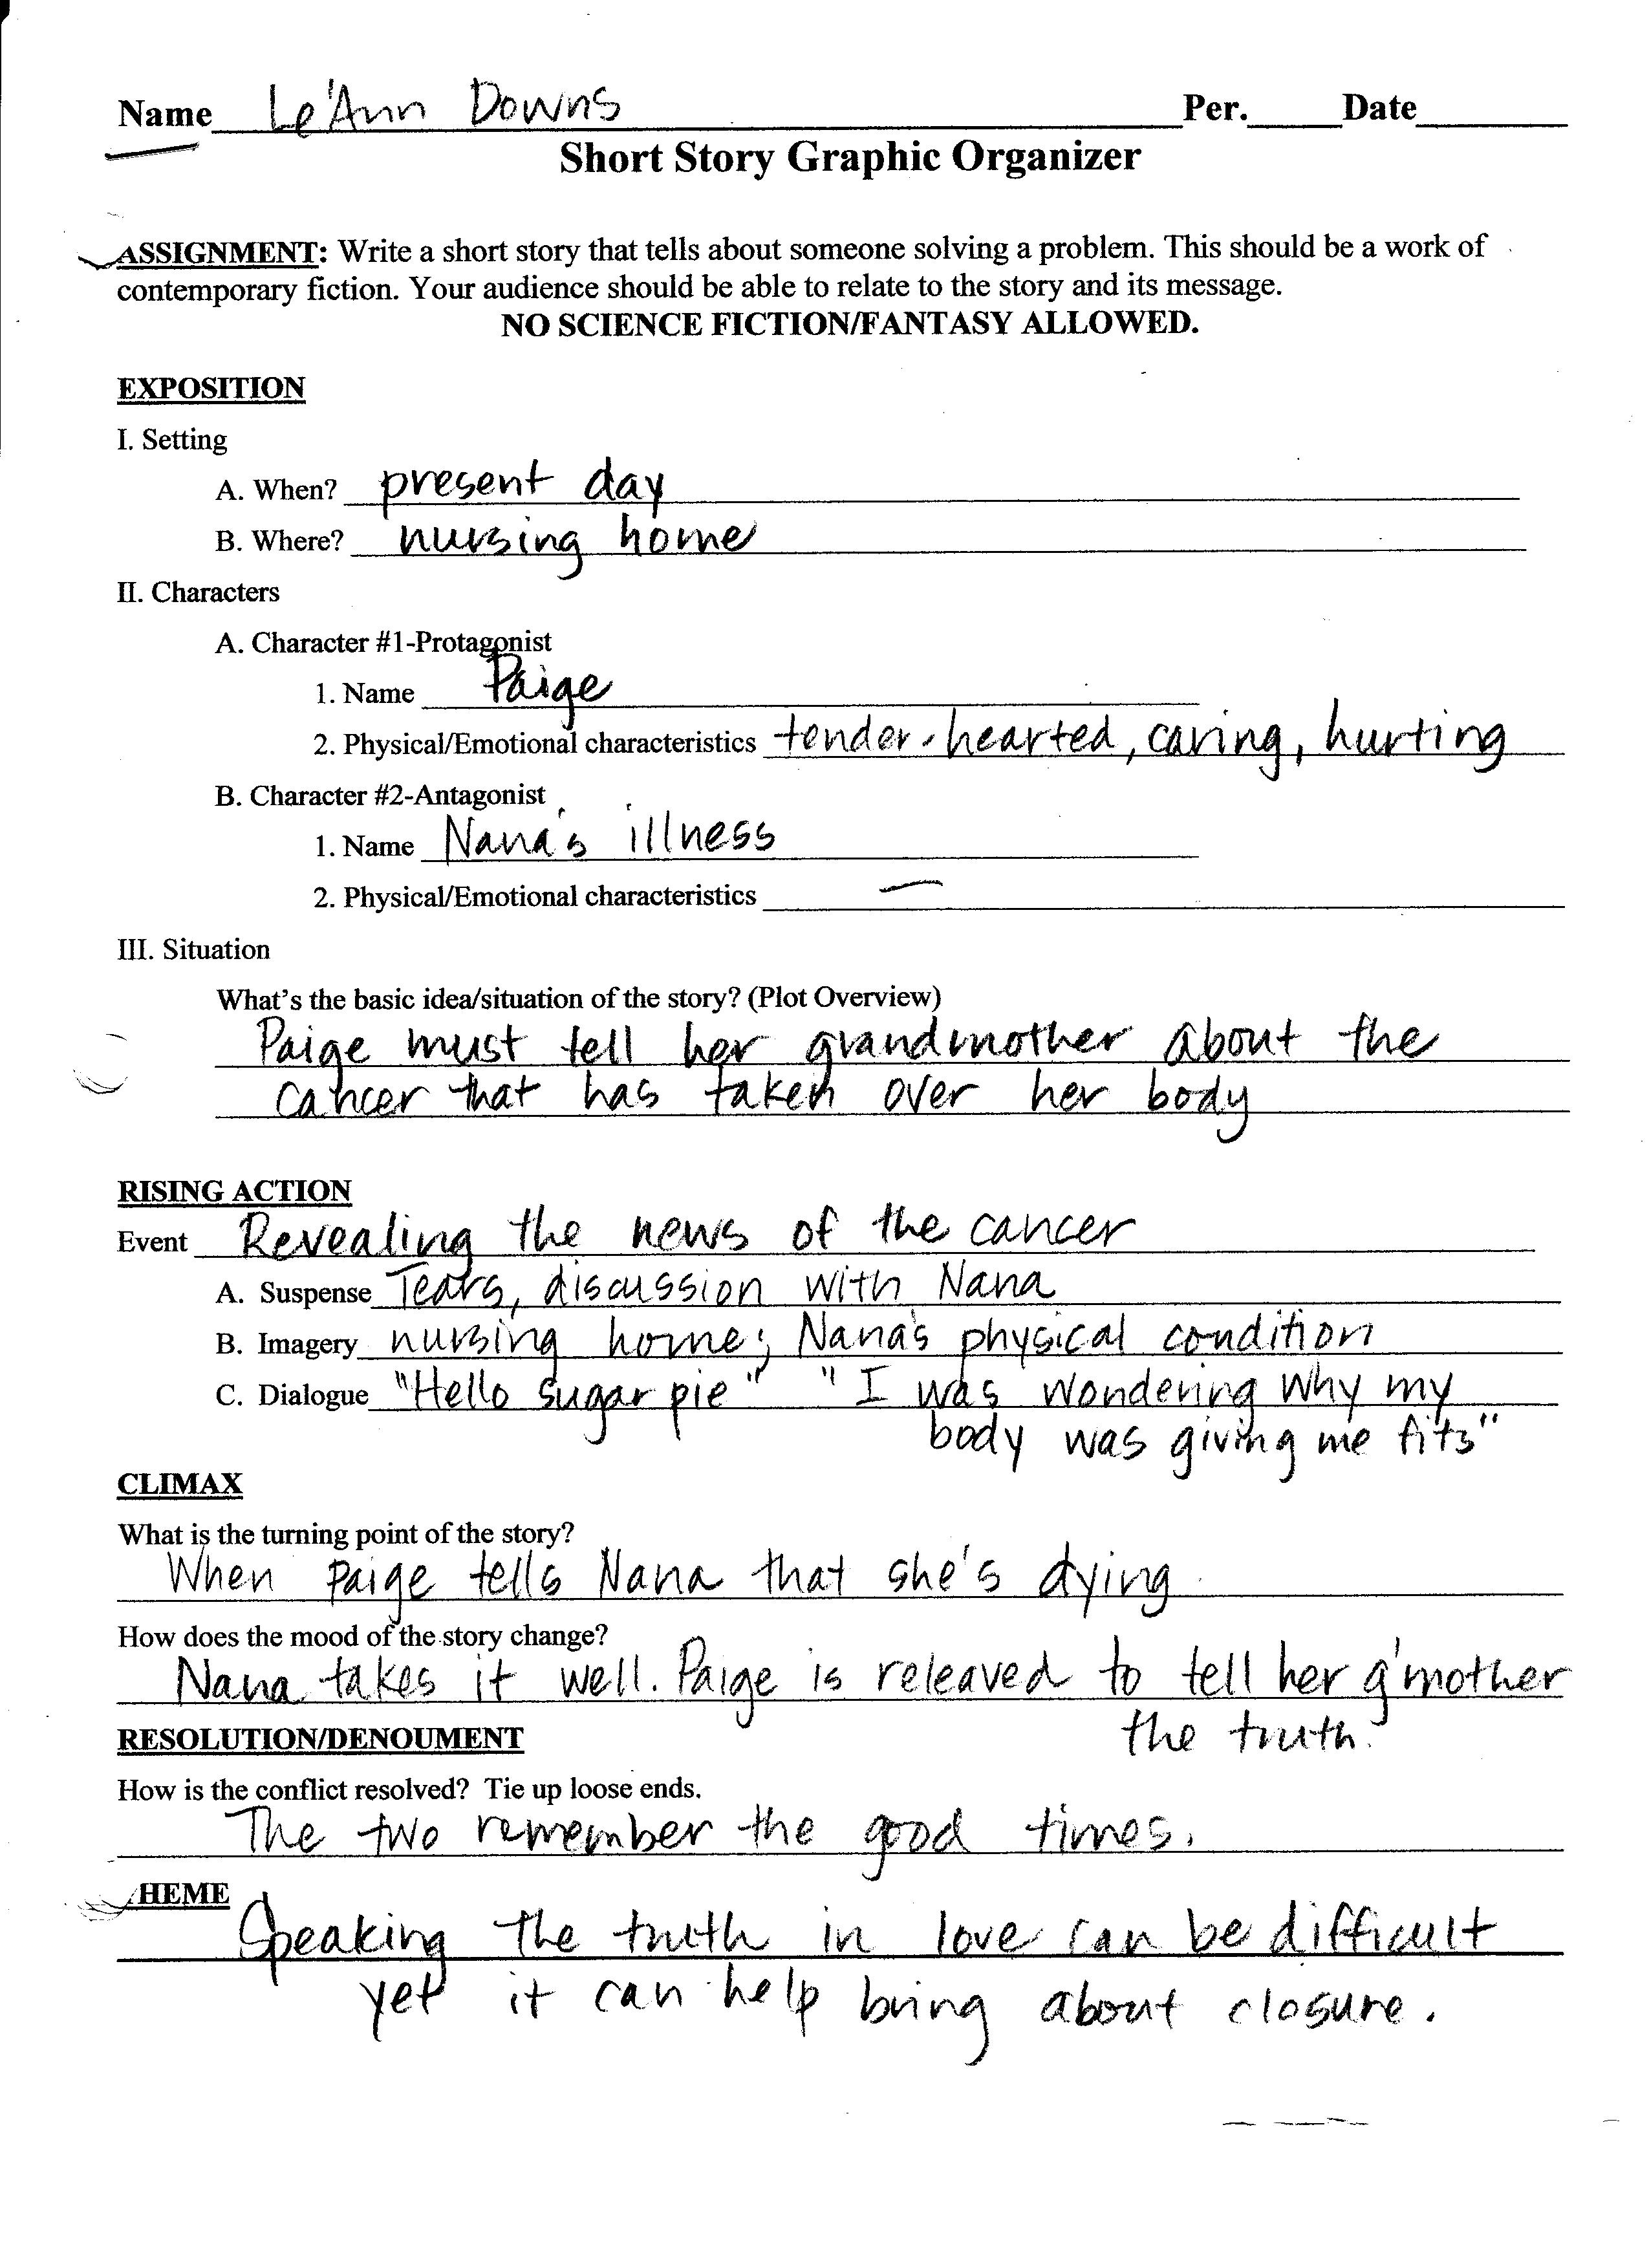 Name Le'Ann Downs Per. Date
Short Story Graphic Organizer
ASSIGNMENT: Write a short story that tells about someone solving a problem. This should be a work of
contemporary fiction. Your audience should be able to relate to the story and its message.
NO SCIENCE FICTION/FANTASY ALLOWED.
EXPOSITION
I. Setting
A. When? present day
B. Where? nursing home
II. Characters
A. Character #1-Protagonist
1. Name Paige
2. Physical/Emotional characteristics tender-hearted, caring, hurting
B. Character #2-Antagonist
1. Name Nana's illness
2. Physical/Emotional characteristics —
III. Situation
What's the basic idea/situation of the story? (Plot Overview)
Paige must tell her grandmother about the
cancer that has taken over her body
RISING ACTION
Event Revealing the news of the cancer
A. Suspense Tears, discussion with Nana
B. Imagery nursing home; Nana's physical condition
C. Dialogue "Hello sugar pie" "I was wondering why my
body was giving me fits"
CLIMAX
What is the turning point of the story?
When Paige tells Nana that she's dying.
How does the mood of the story change?
Nana takes it well. Paige is releaved to tell her g'mother
the truth.
RESOLUTION/DENOUMENT
How is the conflict resolved? Tie up loose ends.
The two remember the good times.
HEME
Speaking the truth in love can be difficult
yet it can help bring about closure.